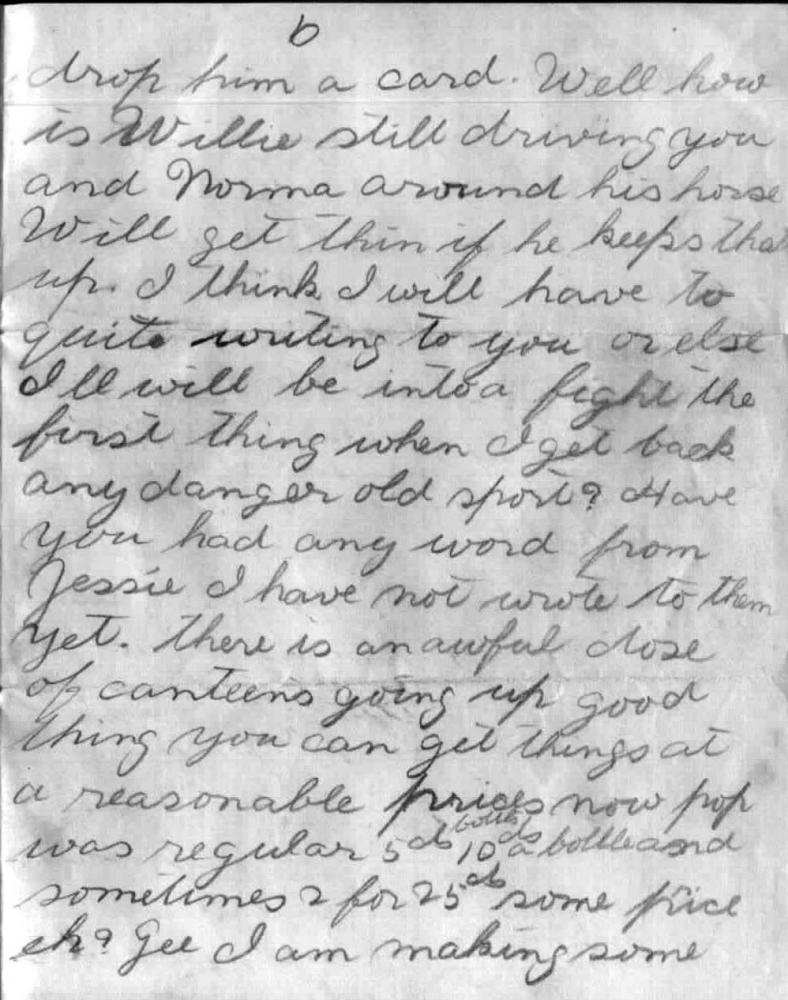 6
drop him a card. Well how
is Willie still driving you
and Norma around his horse
Will get thin if he keeps tha
up. I think I will have to
quite writing to you or else
Ill will be into a fight the
first thing when I get back
any danger old sport? Have
you had any word from
Jessie I have not wrote to them
yet. there is an awful dose
of canteens going up good
thing you can get things at
a reasonable prices now pop
bottle
was regular 5cts 10cts a bottle and
sometimes 2 for 25cts some price
eh? Gee I am making some